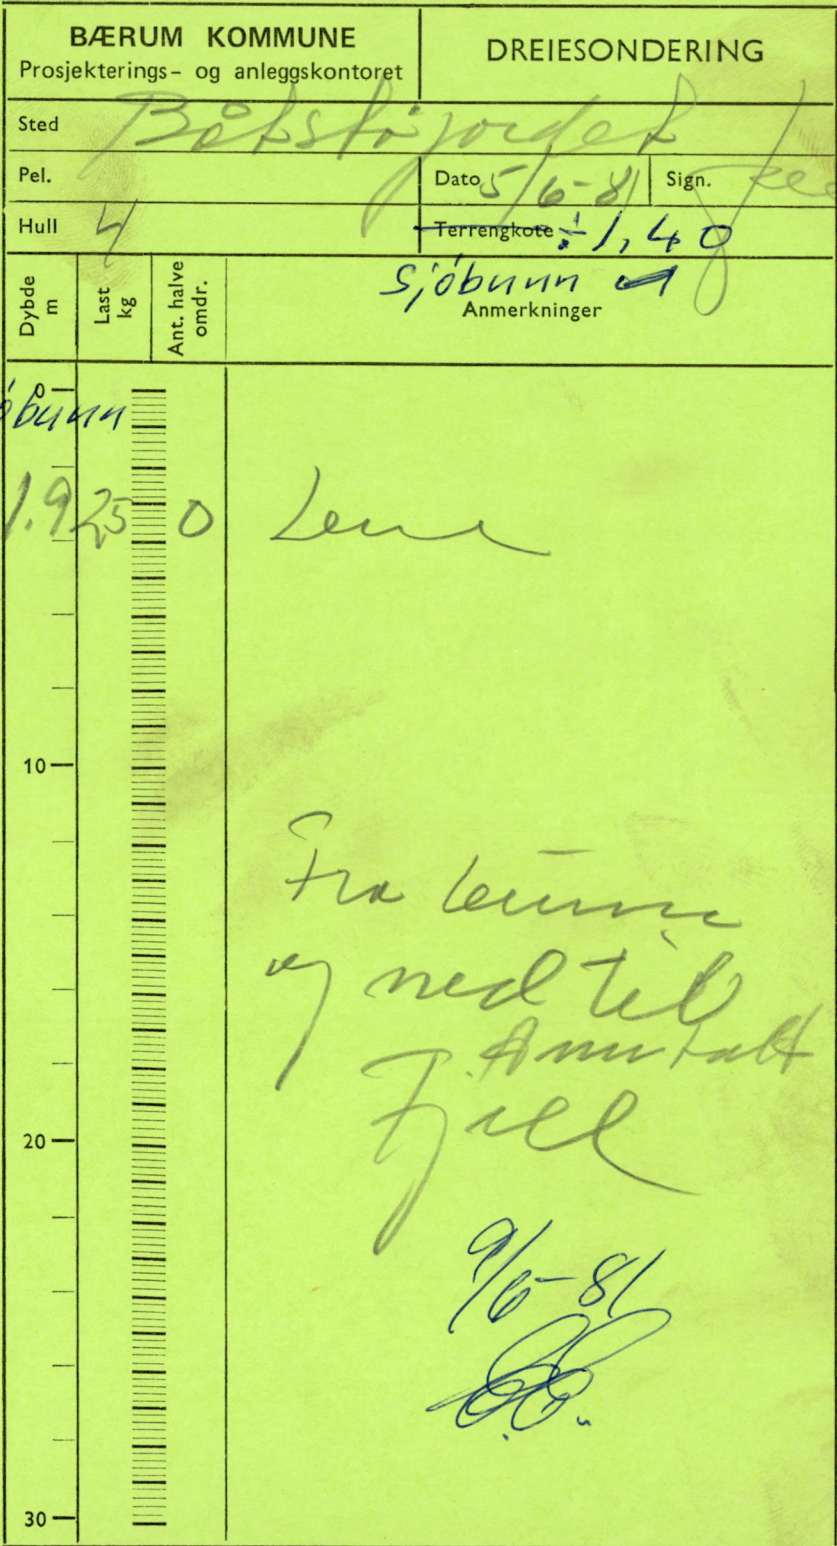 BÆRUM KOMMUNE
Prosjekterings- og anleggskontoret
DREIESONDERING
Sted Båtstøjordet
Pel.
Dato 5/6-81
Sign.
Hull 4
Terrengkote ÷1,40
Sjøbunn
Dybde m
Last kg
Ant. halve omdr.
Anmerkninger
0
øbunn
1.9 25 0 Leire
10
Fra
og ned til
Antatt
Fjell
20
9/6-81
30